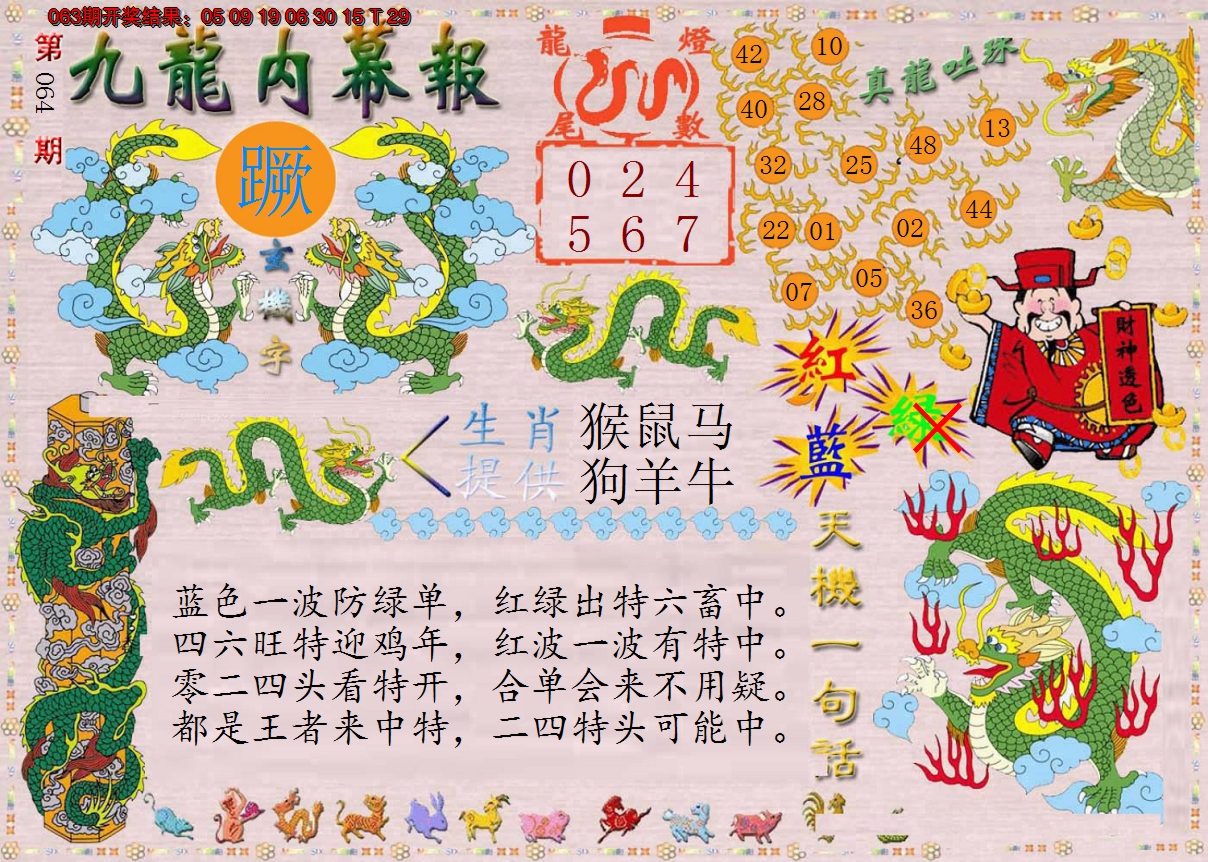 063期开奖结果：05 09 19 06 30 15 T 29
第064期
九龍内幕報
蹶
玄機字
龍燈
尾數
0 2 4
5 6 7
真龍吐珠
42
10
40
28
13
48
32
25
44
22
01
02
05
07
36
財神透色
紅
綠
藍
生肖
提供
猴鼠马
狗羊牛
天機一句話
蓝色一波防绿单，红绿出特六畜中。
四六旺特迎鸡年，红波一波有特中。
零二四头看特开，合单会来不用疑。
都是王者来中特，二四特头可能中。